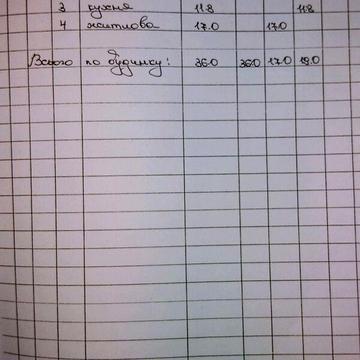 3 кухня 11.8 11.8
4 житлова 17.0 17.0
Всього по будинку: 36.0 36.0 17.0 19.0